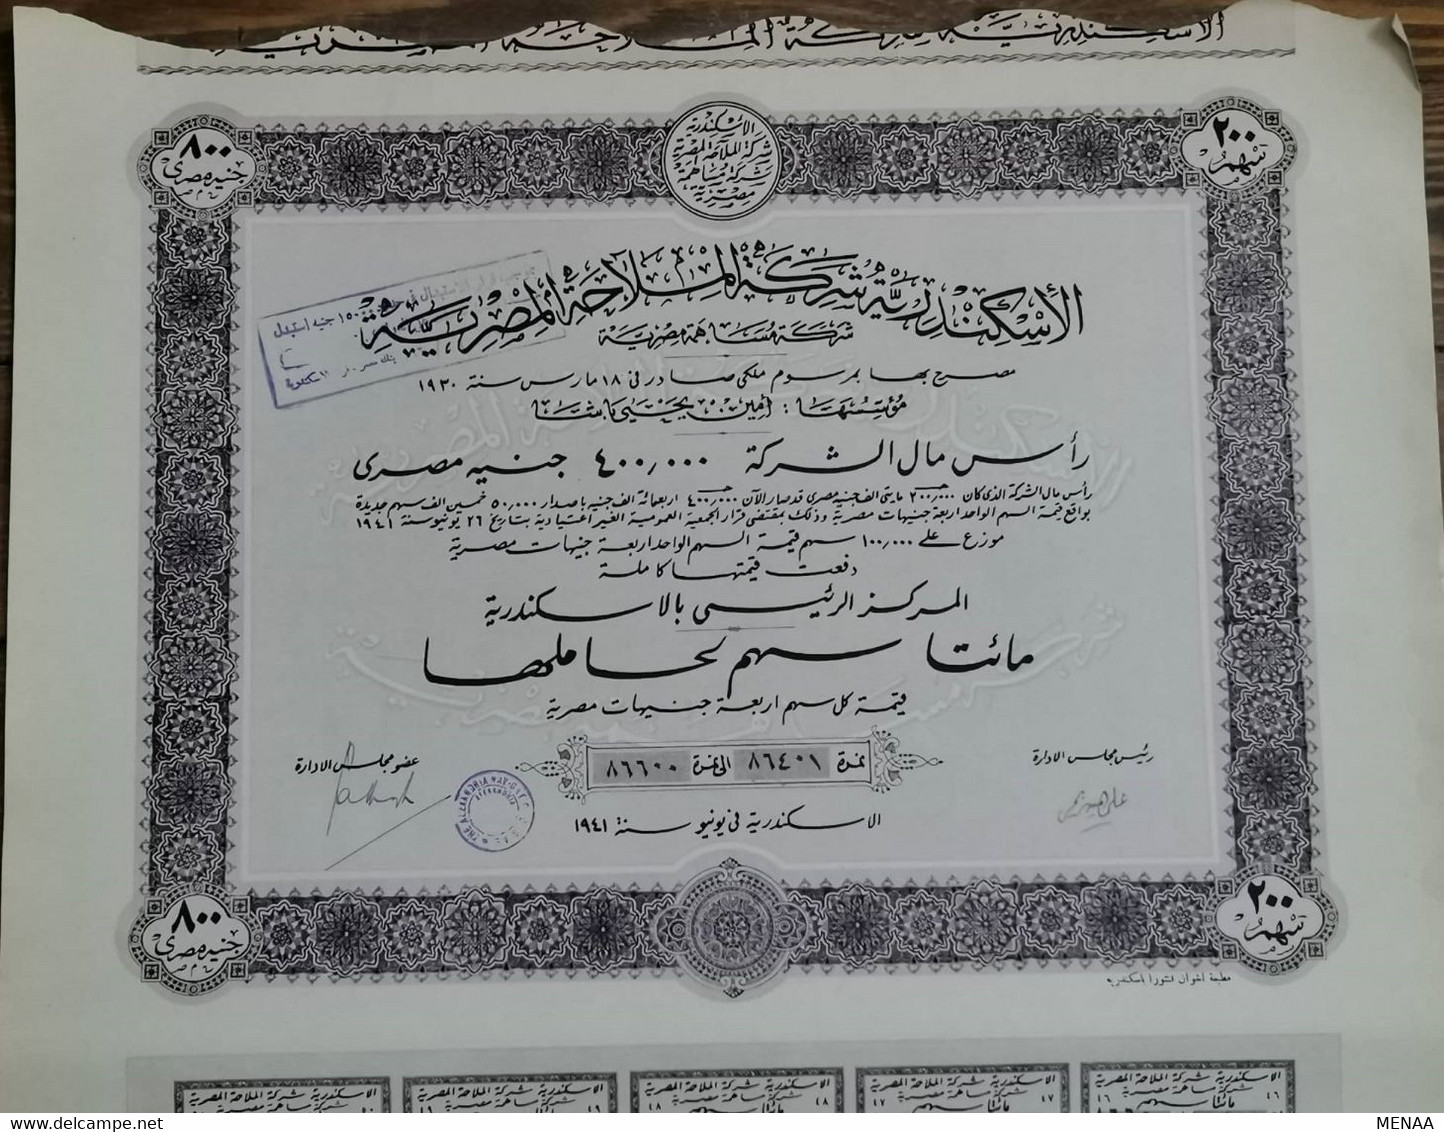 الأسكندرية شركة الملاحة المصرية
٨٠٠
جنيه مصرى
ج٠م
الاسكندرية
شركة الملاحة المصرية
شركة مساهمة
مصرية
٢٠٠
سهم
الأسكندرية شركة الملاحة المصرية
شركة مساهمة مصرية
مصرح بها بمرسوم ملكى صادر فى ١٨ مارس سنة ١٩٣٠
مؤسسها : أمين يحيى باشا
رأس مال الشركة ٤٠٠٫٠٠٠ جنيه مصرى
رأس مال الشركة الذى كان ٢٠٠٫٠٠٠ج مايتى الف جنيه مصرى قد صار الآن ٤٠٠٫٠٠٠ج اربعمائة الف جنيه باصدار ٥٠٫٠٠٠ خمسين الف سهم جديدة
بواقع قيمة السهم الواحد اربعة جنيهات مصرية وذلك بمقتضى قرار الجمعية العمومية الغير اعتيادية بتاريخ ٢٦ يونيو سنة ١٩٤١
موزع على ١٠٠٫٠٠٠ سهم قيمة السهم الواحد اربعة جنيهات مصرية
دفعت قيمتها كاملة
المركز الرئيسى بالاسكندرية
مائتا سهم لحاملها
قيمة كل سهم اربعة جنيهات مصرية
رئيس مجلس الادارة
نمرة ٨٦٤٠١ الى نمرة ٨٦٦٠٠
عضو مجلس الادارة
THE ALEXANDRIA
ALEXANDRIA
الاسكندرية فى يونيو سنة ١٩٤١
٨٠٠
جنيه مصرى
ج٠م
٢٠٠
سهم
مطبعة اخوان فنتورا باسكندرية
الاسكندرية شركة الملاحة المصرية
شركة مساهمة مصرية
٤٦ مائتا سهم ٤٦
الاسكندرية شركة الملاحة المصرية
شركة مساهمة مصرية
٤٧ مائتا سهم ٤٧
الاسكندرية شركة الملاحة المصرية
شركة مساهمة مصرية
٤٨ مائتا سهم ٤٨
الاسكندرية شركة الملاحة المصرية
شركة مساهمة مصرية
الاسكندرية شركة الملاحة المصرية
شركة مساهمة مصرية
delcampe.net
MENAA